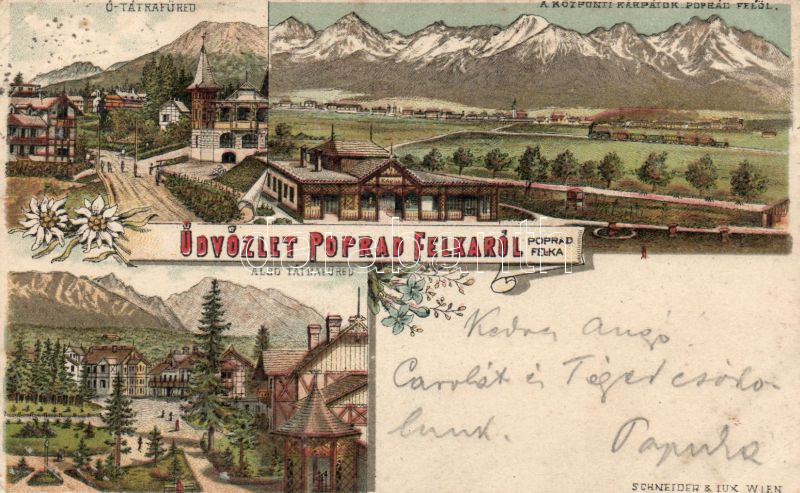 Ó-TÁTRAFÜRED
A KÖZPONTI KÁRPÁTOK POPRÁD FELŐL.
ÜDVÖZLET POPRÁD FELKÁRÓL
POPRÁD
FELKA
ALSÓ TÁTRAFÜRED
Kedves
Carolát és Téged csóko-
lunk.
SCHNEIDER & LUX WIEN